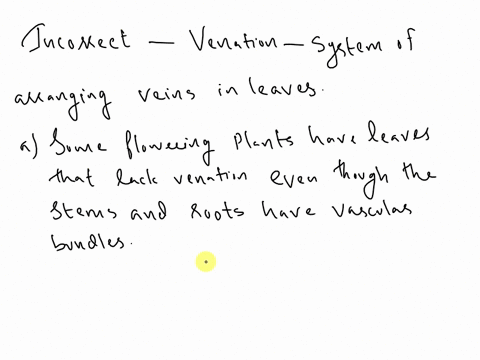 Incorrect — Venation — System of
arranging veins in leaves.
a) Some flowering plants have leaves
that lack venation even though the
stems and roots have vascular
bundles.